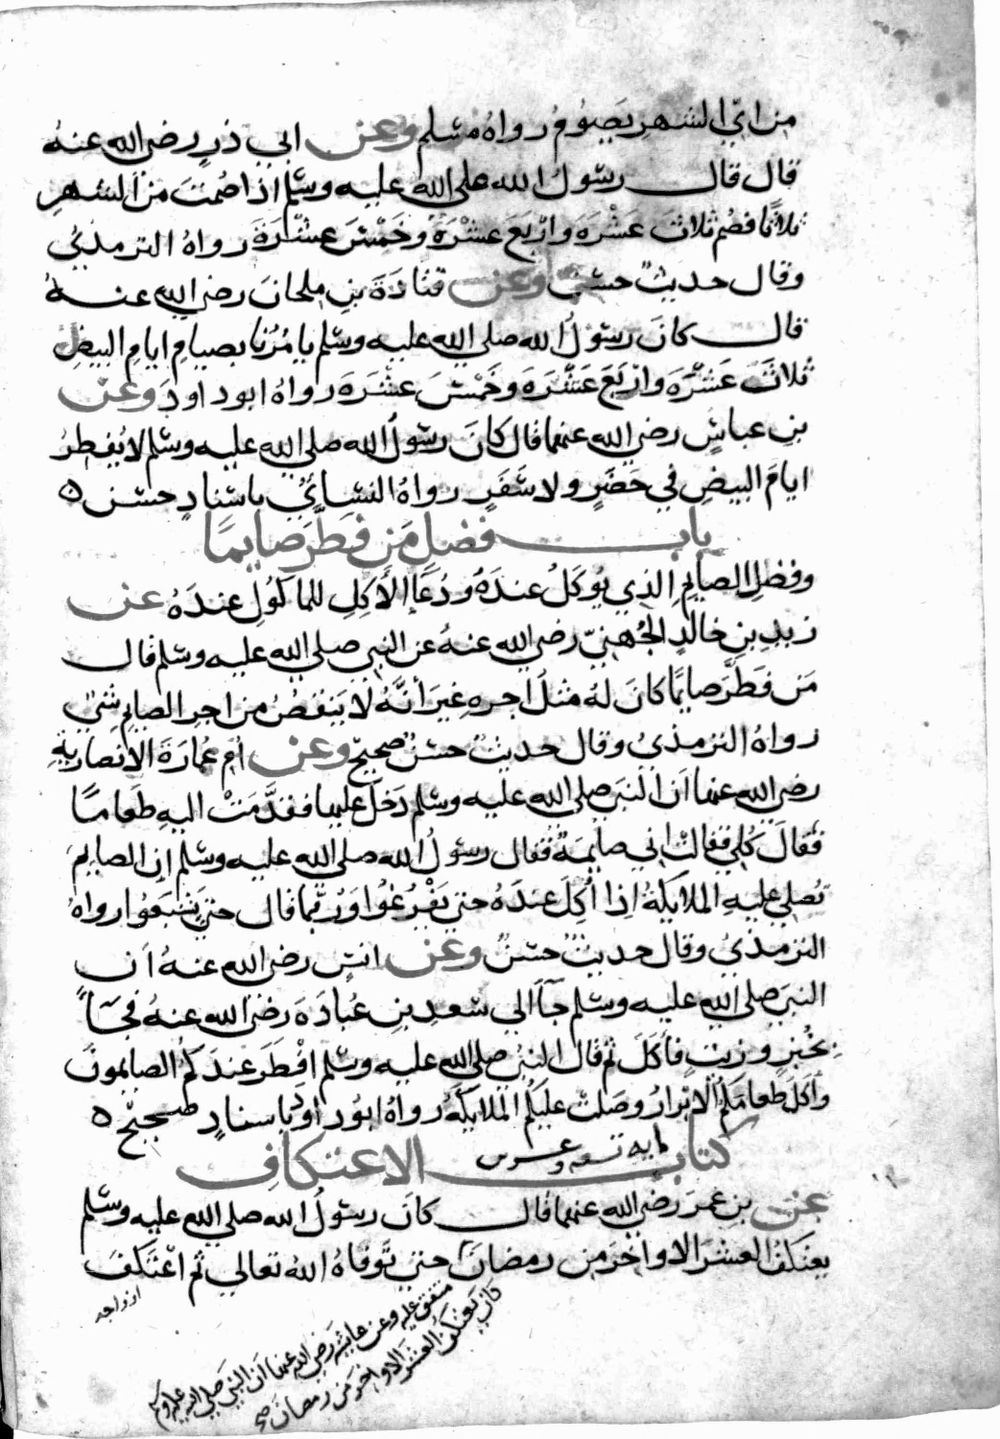 من ايّ الشهر يَصُومُ رواهُ مسْلم وعن ابي ذرٍ رضي الله عنهُ
قال قال رسْولُ الله صلى الله عليه وسْلم اذا صُمتَ من الشهرِ
ثلاثًا فصُم ثلاثَ عَشْرَةَ وارْبَعَ عشْرَةَ وخَمْسَ عشْرَةَ رواهُ الترمذيُ
وقال حديثٌ حسْنٌ وعن قتادَةَ بنِ ملحانَ رضي الله عنهُ
قال كانَ رسْولُ الله صلى الله عليه وسْلم يامُرُنا بصيامِ ايامِ البيضِ
ثلاثَ عَشْرَةَ وارْبَعَ عَشْرَةَ وخَمْسَ عَشْرَةَ رواهُ ابوداودَ وعن
بنِ عباسٍ رضي الله عنهما قال كانَ رسْولُ الله صلى الله عليه وسْلم لا يُفطِرُ
ايامَ البيضِ في حَضَرٍ ولا سَْفَرٍ رواهُ النسْائيُ باسْنادٍ حسْنٍ ٥
باب فضلِ مَن فطَّرَ صايمًا
وفضلِ الصايمِ الذي يُوكَلُ عندَهُ ودُعَاِ الاَكِلِ للماكُولِ عندَهُ عن
زيدِ بنِ خالدٍ الجُهَنيّ رضي الله عنهُ عن النبي صلى الله عليه وسْلم قال
مَن فطَّرَ صايمًا كانَ لهُ مثلَ اجرِهِ غيرَ أنَّهُ لا يَنقصُ من اجرِ الصايم شيْ
رواهُ الترمذيُ وقال حديثٌ حسْنٌ صحيحٌ وعن ام عُمارَةَ الانصاريةِ
رضي الله عنها اَن النبَي صلى الله عليه وسْلم دَخلَ عليها فقدَّمَتْ اليهِ طَعامًا
فقالَ كُلِي فقالت اني صايمَةٌ فقال رسْولُ الله صلى الله عليه وسْلم اِن الصايمَ
تُصلي عليهِ الملايكَةُ اِذا أُكِلَ عندَهُ حتي يَفْرُغُوا وَرُبَّما قال حتي يَشبَعُوا رواهُ
الترمذيُ وقال حديثٌ حسْنٌ وعن انسٍ رضي الله عنهُ اَن
النبيَ صلى الله عليه وسْلم جآَ الي سْعدِ بنِ عُبادَةَ رضي الله عنهُ فجآَ
بخُبزٍ وزيتٍ فأكَلَ ثم قال النبي صلى الله عليه وسْلم افْطَرَ عندَكُم الصايمونَ
وأكَلَ طَعامَكُم الابْرارُ وصَلتْ عليكُم الملايكَةُ رواهُ ابُوداودَ باسنادٍ صحيحٍ ٥
كتاب الاعتكافِ
مايه تسعه وعسرس
عن بن عُمرَ رضي الله عنهما قال كانَ رسْولُ الله صلى الله عليه وسْلم
يعتكفُ العشرَ الاواخرَ من رمضانَ حتي تَوفاهُ اللهُ تعالي ثم اعْتكَفَ
ازواجه
متفق عليه وعن عايشة رضي الله عنها اَن النبي صلى الله عليه وسلم
كان يعتكف العشر الاواخر من رمضان صح